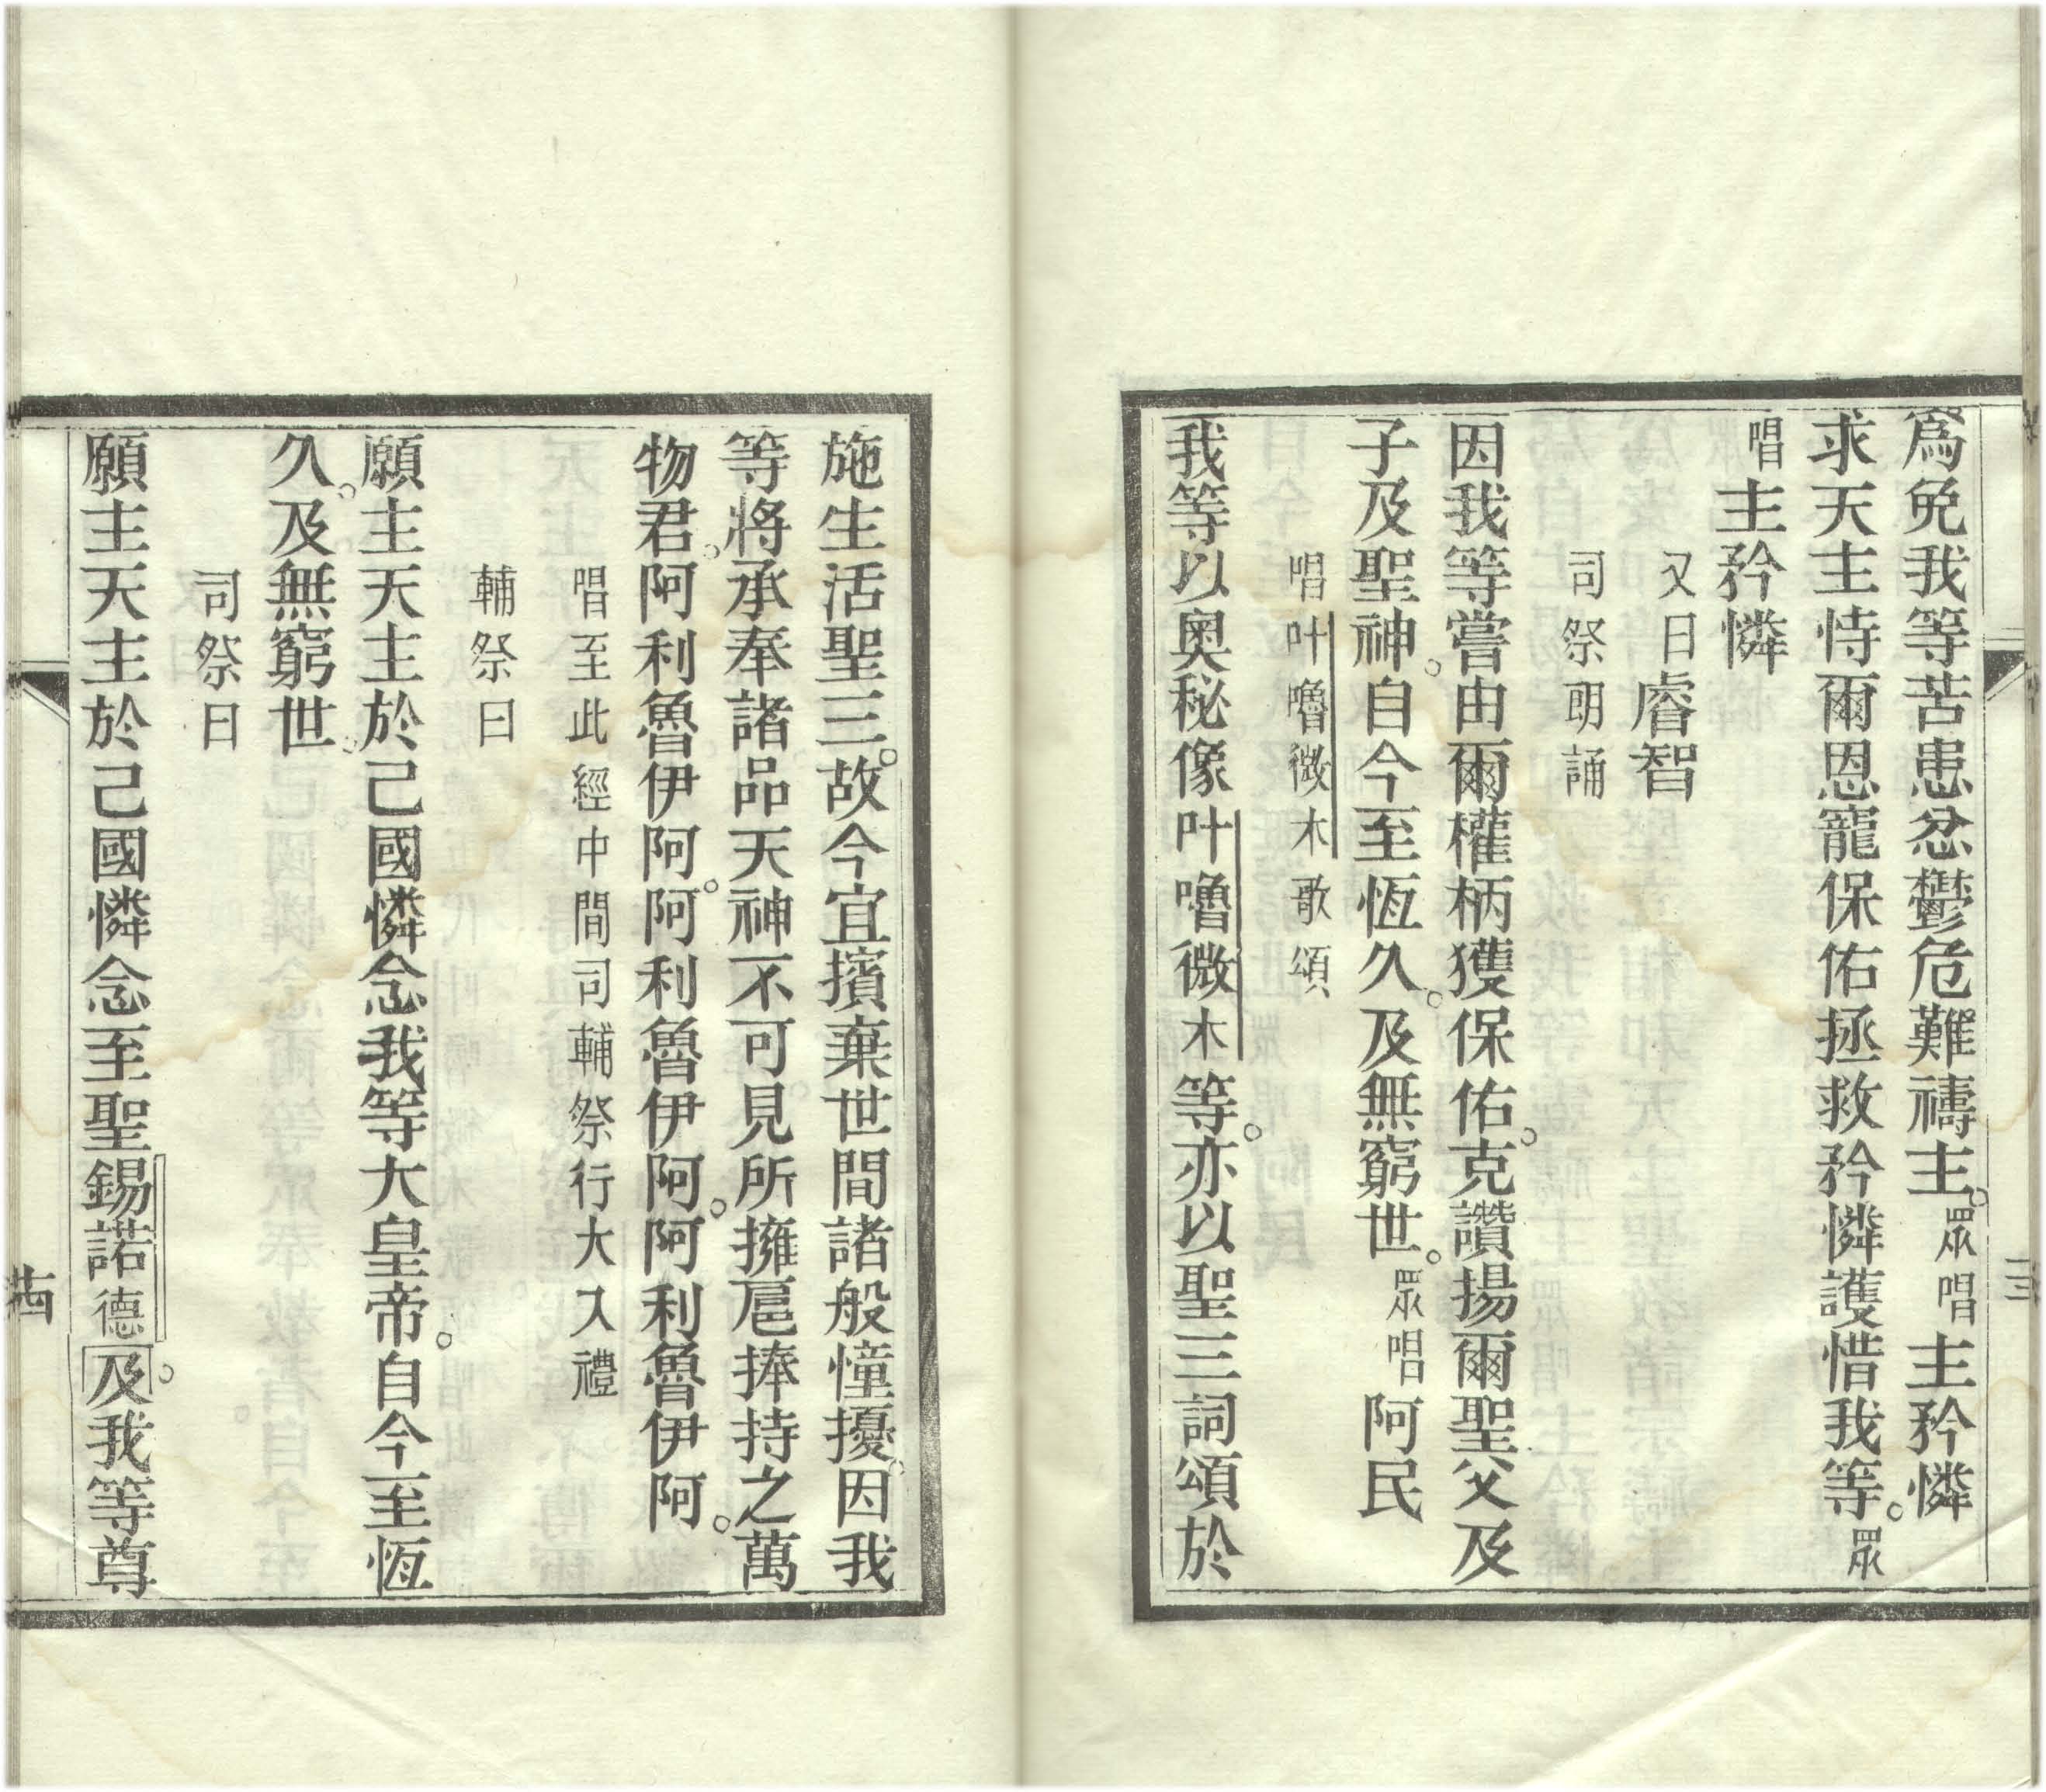 爲免我等苦患忿鬱危難禱主。眾唱主矜憐
求天主恃爾恩寵保佑拯救矜憐護惜我等。眾
唱主矜憐
又曰睿智
司祭朗誦
因我等嘗由爾權柄獲保佑。克讚揚爾聖父及
子及聖神。自今至恆久。及無窮世。眾唱阿民
唱叶嚕微木歌頌
我等以奧秘像叶嚕微木等。亦以聖三詞頌於
施生活聖三。故今宜擯棄世間諸般憧擾。因我
等將承奉諸品天神不可見所擁扈捧持之萬
物君。阿利魯伊阿。阿利魯伊阿。阿利魯伊阿。
唱至此經中間司輔祭行大入禮
輔祭曰
願主天主於己國憐念我等大皇帝。自今至恆
久。及無窮世。
司祭曰
願主天主於己國憐念至聖錫諾德及。我等尊